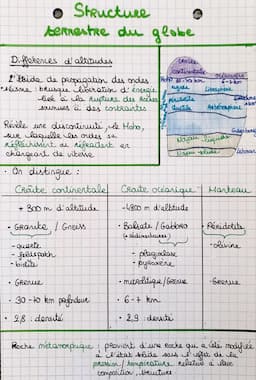 Structure
terrestre du globe
Différences d'altitudes
L'étude de propagation des ondes
sismique : brusque libération d'énergie
liée à la rupture des roches
soumises à des contraintes
Révèle une discontinuité, le Moho,
sur laquelle les ondes se
réfléchissent ou réfractent en
changeant de vitesse
Croûte
continentale
océanique
6-7 km
Moho
30-70 km
rigide
Lithosphère
ductile
Asthénosphère
Noyau liquide
Noyau solide
• On distingue :
Croûte continentale
Croûte océanique
Manteau
+ 300 m d'altitude
-4800 m d'altitude
- Granite / Gneiss
- Basalte / Gabbro
(+ sédimentaires)
- Péridotite
- quartz
- feldspath
- biotite
- plagioclase
- pyroxène
- olivine
- Grenue
- microlitique / Grenue
- Grenue
- 30-70 km profondeur
- 6-7 km
- 2,8 : densité
- 2,9 : densité
Roche métamorphique : provient d'une roche qui a été modifiée
à l'état solide sous l'effet de la
pression / température relatives à leur
composition, structure